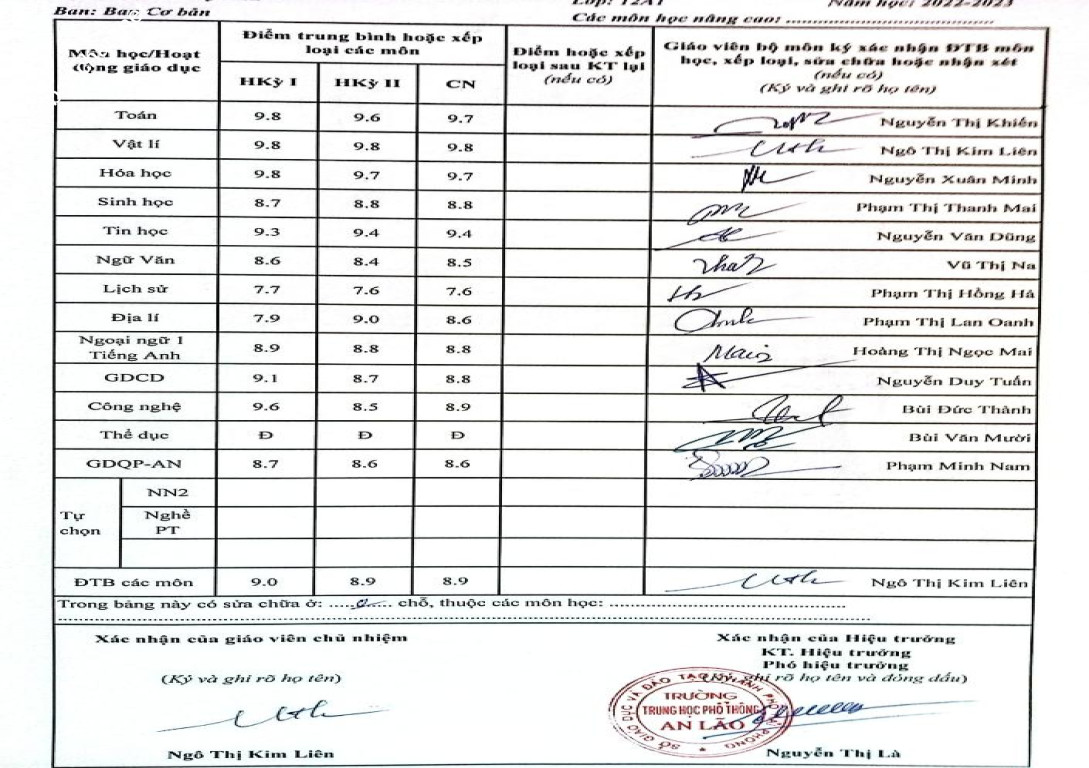 Ban: Ban Cơ bản
Lớp: 12A1
Năm học: 2022-2023
Các môn học nâng cao: ..............................
Môn học/Hoạt động giáo dục
Điểm trung bình hoặc xếp loại các môn
HKỳ I HKỳ II CN
Điểm hoặc xếp loại sau KT lại (nếu có)
Giáo viên bộ môn ký xác nhận ĐTB môn học, xếp loại, sửa chữa hoặc nhận xét (nếu có) (Ký và ghi rõ họ tên)
Toán 9.8 9.6 9.7 Nguyễn Thị Khiến
Vật lí 9.8 9.8 9.8 Ngô Thị Kim Liên
Hóa học 9.8 9.7 9.7 Nguyễn Xuân Minh
Sinh học 8.7 8.8 8.8 Phạm Thị Thanh Mai
Tin học 9.3 9.4 9.4 Nguyễn Văn Dũng
Ngữ Văn 8.6 8.4 8.5 Vũ Thị Na
Lịch sử 7.7 7.6 7.6 Phạm Thị Hồng Hà
Địa lí 7.9 9.0 8.6 Phạm Thị Lan Oanh
Ngoại ngữ 1 Tiếng Anh 8.9 8.8 8.8 Hoàng Thị Ngọc Mai
GDCD 9.1 8.7 8.8 Nguyễn Duy Tuấn
Công nghệ 9.6 8.5 8.9 Bùi Đức Thành
Thể dục Đ Đ Đ Bùi Văn Mười
GDQP-AN 8.7 8.6 8.6 Phạm Minh Nam
Tự chọn
NN2
Nghề PT
ĐTB các môn 9.0 8.9 8.9 Ngô Thị Kim Liên
Trong bảng này có sửa chữa ở: .....0..... chỗ, thuộc các môn học: ..............................
Xác nhận của giáo viên chủ nhiệm
(Ký và ghi rõ họ tên)
Ngô Thị Kim Liên
Xác nhận của Hiệu trưởng
KT. Hiệu trưởng
Phó hiệu trưởng
(Ký, ghi rõ họ tên và đóng dấu)
SỞ GIÁO DỤC VÀ ĐÀO TẠO THÀNH PHỐ HẢI PHÒNG
TRƯỜNG
TRUNG HỌC PHỔ THÔNG
AN LÃO
Nguyễn Thị Là